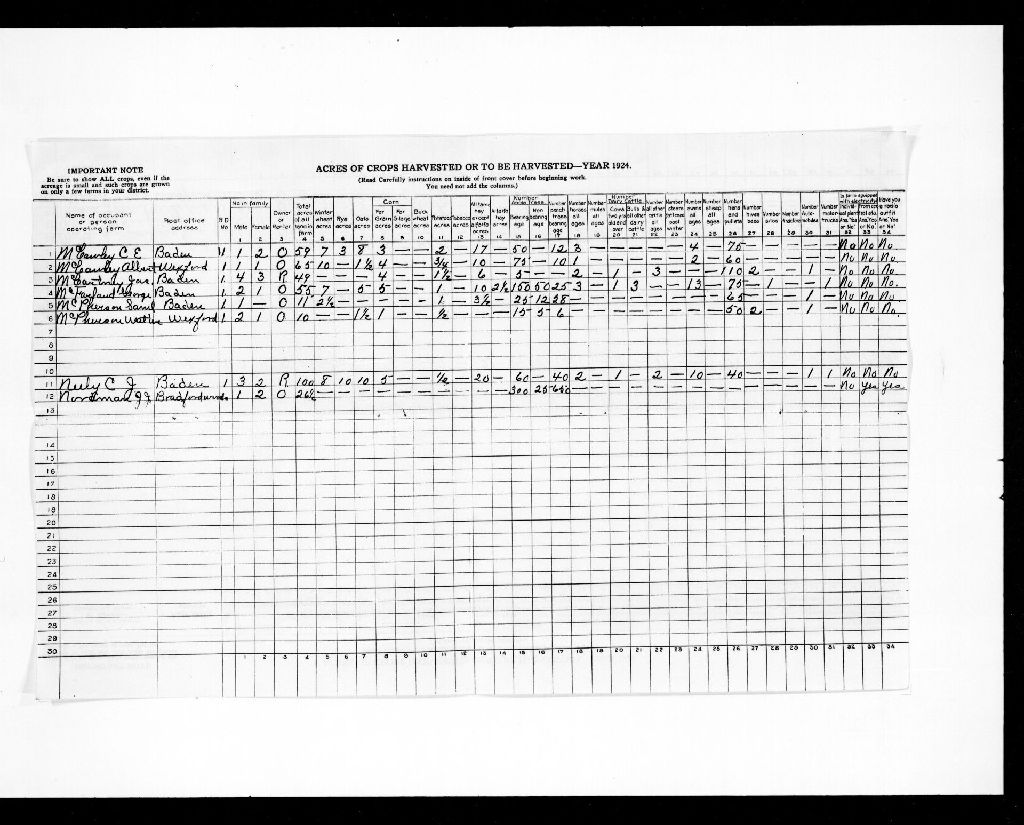 IMPORTANT NOTE
Be sure to show ALL crops, even if the
acreage is small and such crops are grown
on only a few farms in your district.
ACRES OF CROPS HARVESTED OR TO BE HARVESTED—YEAR 1924.
(Read Carefully instructions on inside of front cover before beginning work.
You need not add the columns.)
Name of occupant or person operating farm
Post office address
No in family
Male
Female
Owner or Renter
Total acres of all land in farm
Winter wheat acres
Rye acres
Oats acres
Corn
For Grain acres
For Silage acres
Buck wheat acres
Potatoes acres
Tobacco acres
Alfalfa hay acres
Number Apple Trees
Bearing age
Non bearing age
Number peach trees bearing age
Number horses all ages
Number mules all ages
Number Dairy Cattle
Number hens and pullets
Number hives bees
1 2 3 4 5 6 7 8 9 10 11 12 13 14 15 16 17 18 19 20 21 22 23 24 25 26 27 28 29 30 31 32 33 34
1 McCawley C E Baden 1 1 2 O 59 7 3 8 3 — — — 2 — 17 — 50 — 12 3 — — — — — 4 — 75 — — — — — No No No
2 McCawley Albert Wexford 1 1 1 O 65 10 — 1½ 4 — — — ¾ — 10 — 75 — 10 1 — — — — — 2 — 60 — — — — — No No No.
3 McCartney Jas. Baden 1 4 3 R 49 — — — 4 — — — 1½ — 6 — 5 — — 2 — 1 — 3 — — — 110 2 — — 1 — No No No.
4 George Baden 1 2 1 O 55 7 — 5 5 — — — 1 — 10 2½ 150 50 25 3 — 1 3 — — 13 — 75 — 1 — — 1 No No No.
5 McPherson Saml Baden 1 1 — O 11 2½ — — — — — — 1 — 3½ — 25 12 38 — — — — — — — — 65 — — — 1 — No No No
6 McPherson Wexford 1 2 1 O 10 — — 1½ 1 — — — ½ — — — 15 5 6 — — — — — — — — 50 2 — — 1 — No No No.
7
8
9
10
11 Neely C J Baden 1 3 2 R 100 8 10 10 5 — — — ½ — 20 — 60 — 40 2 — 1 — 2 — 10 — 40 — — — 1 1 No No No
12 Nordman J J Bradfordwoods 1 2 O 26½ — — — — — — — — — — — 300 25 650 — — — — — — — — — — — — — — No Yes Yes
13
14
15
16
17
18
19
20
21
22
23
24
25
26
27
28
29
30
1 2 3 4 5 6 7 8 9 10 11 12 13 14 15 16 17 18 19 20 21 22 23 24 25 26 27 28 29 30 31 32 33 34